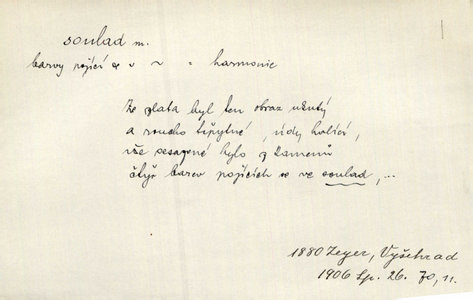 soulad m.
barvy pojící se v ~ = harmonie
Ze zlata byl ten obraz užutý
a roucho třpytné, údy halící,
vše sesazené bylo z kamenů
čtyř barev pojících se ve soulad,...
1880 Zeyer, Vyšehrad
1906 Sp. 26. 70, 11.